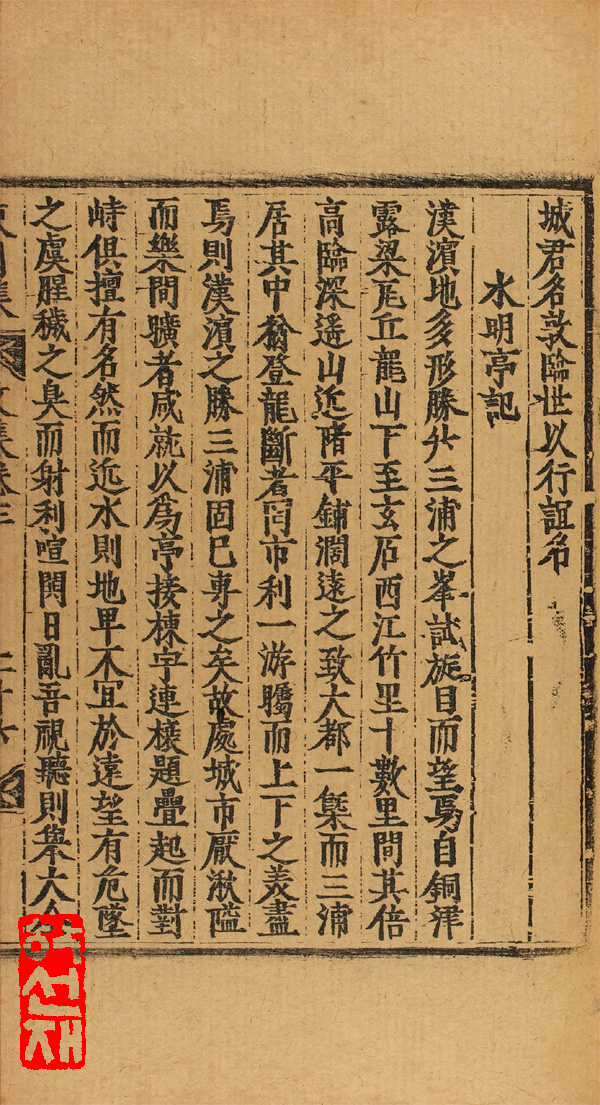 城君名敦臨世以行誼名
水明亭記
漢濱地多形勝升三浦之峯試旋目而望焉自銅津
露梁瓦丘龍山下至玄石西江竹里十數里間其倍
高臨深遙山近陼平鋪濶遠之致大都一槩而三浦
居其中翁登龍斷者罔市利一游矚而上下之羙盡
焉則漢濱之勝三浦固已專之矣故處城市厭湫隘
而樂間曠者咸就以爲亭接棟宇連榱題疊起而對
峙俱擅有名然而近水則地卑不宜於遠望有危墜
之虞腥穢之臭而射利喧鬨日亂吾視聽則擧大
선재